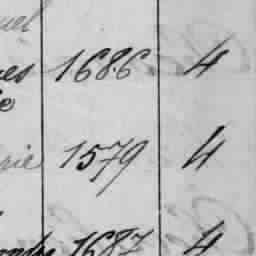 uel
es 1686 4
e
rie 1579 4
1687 4